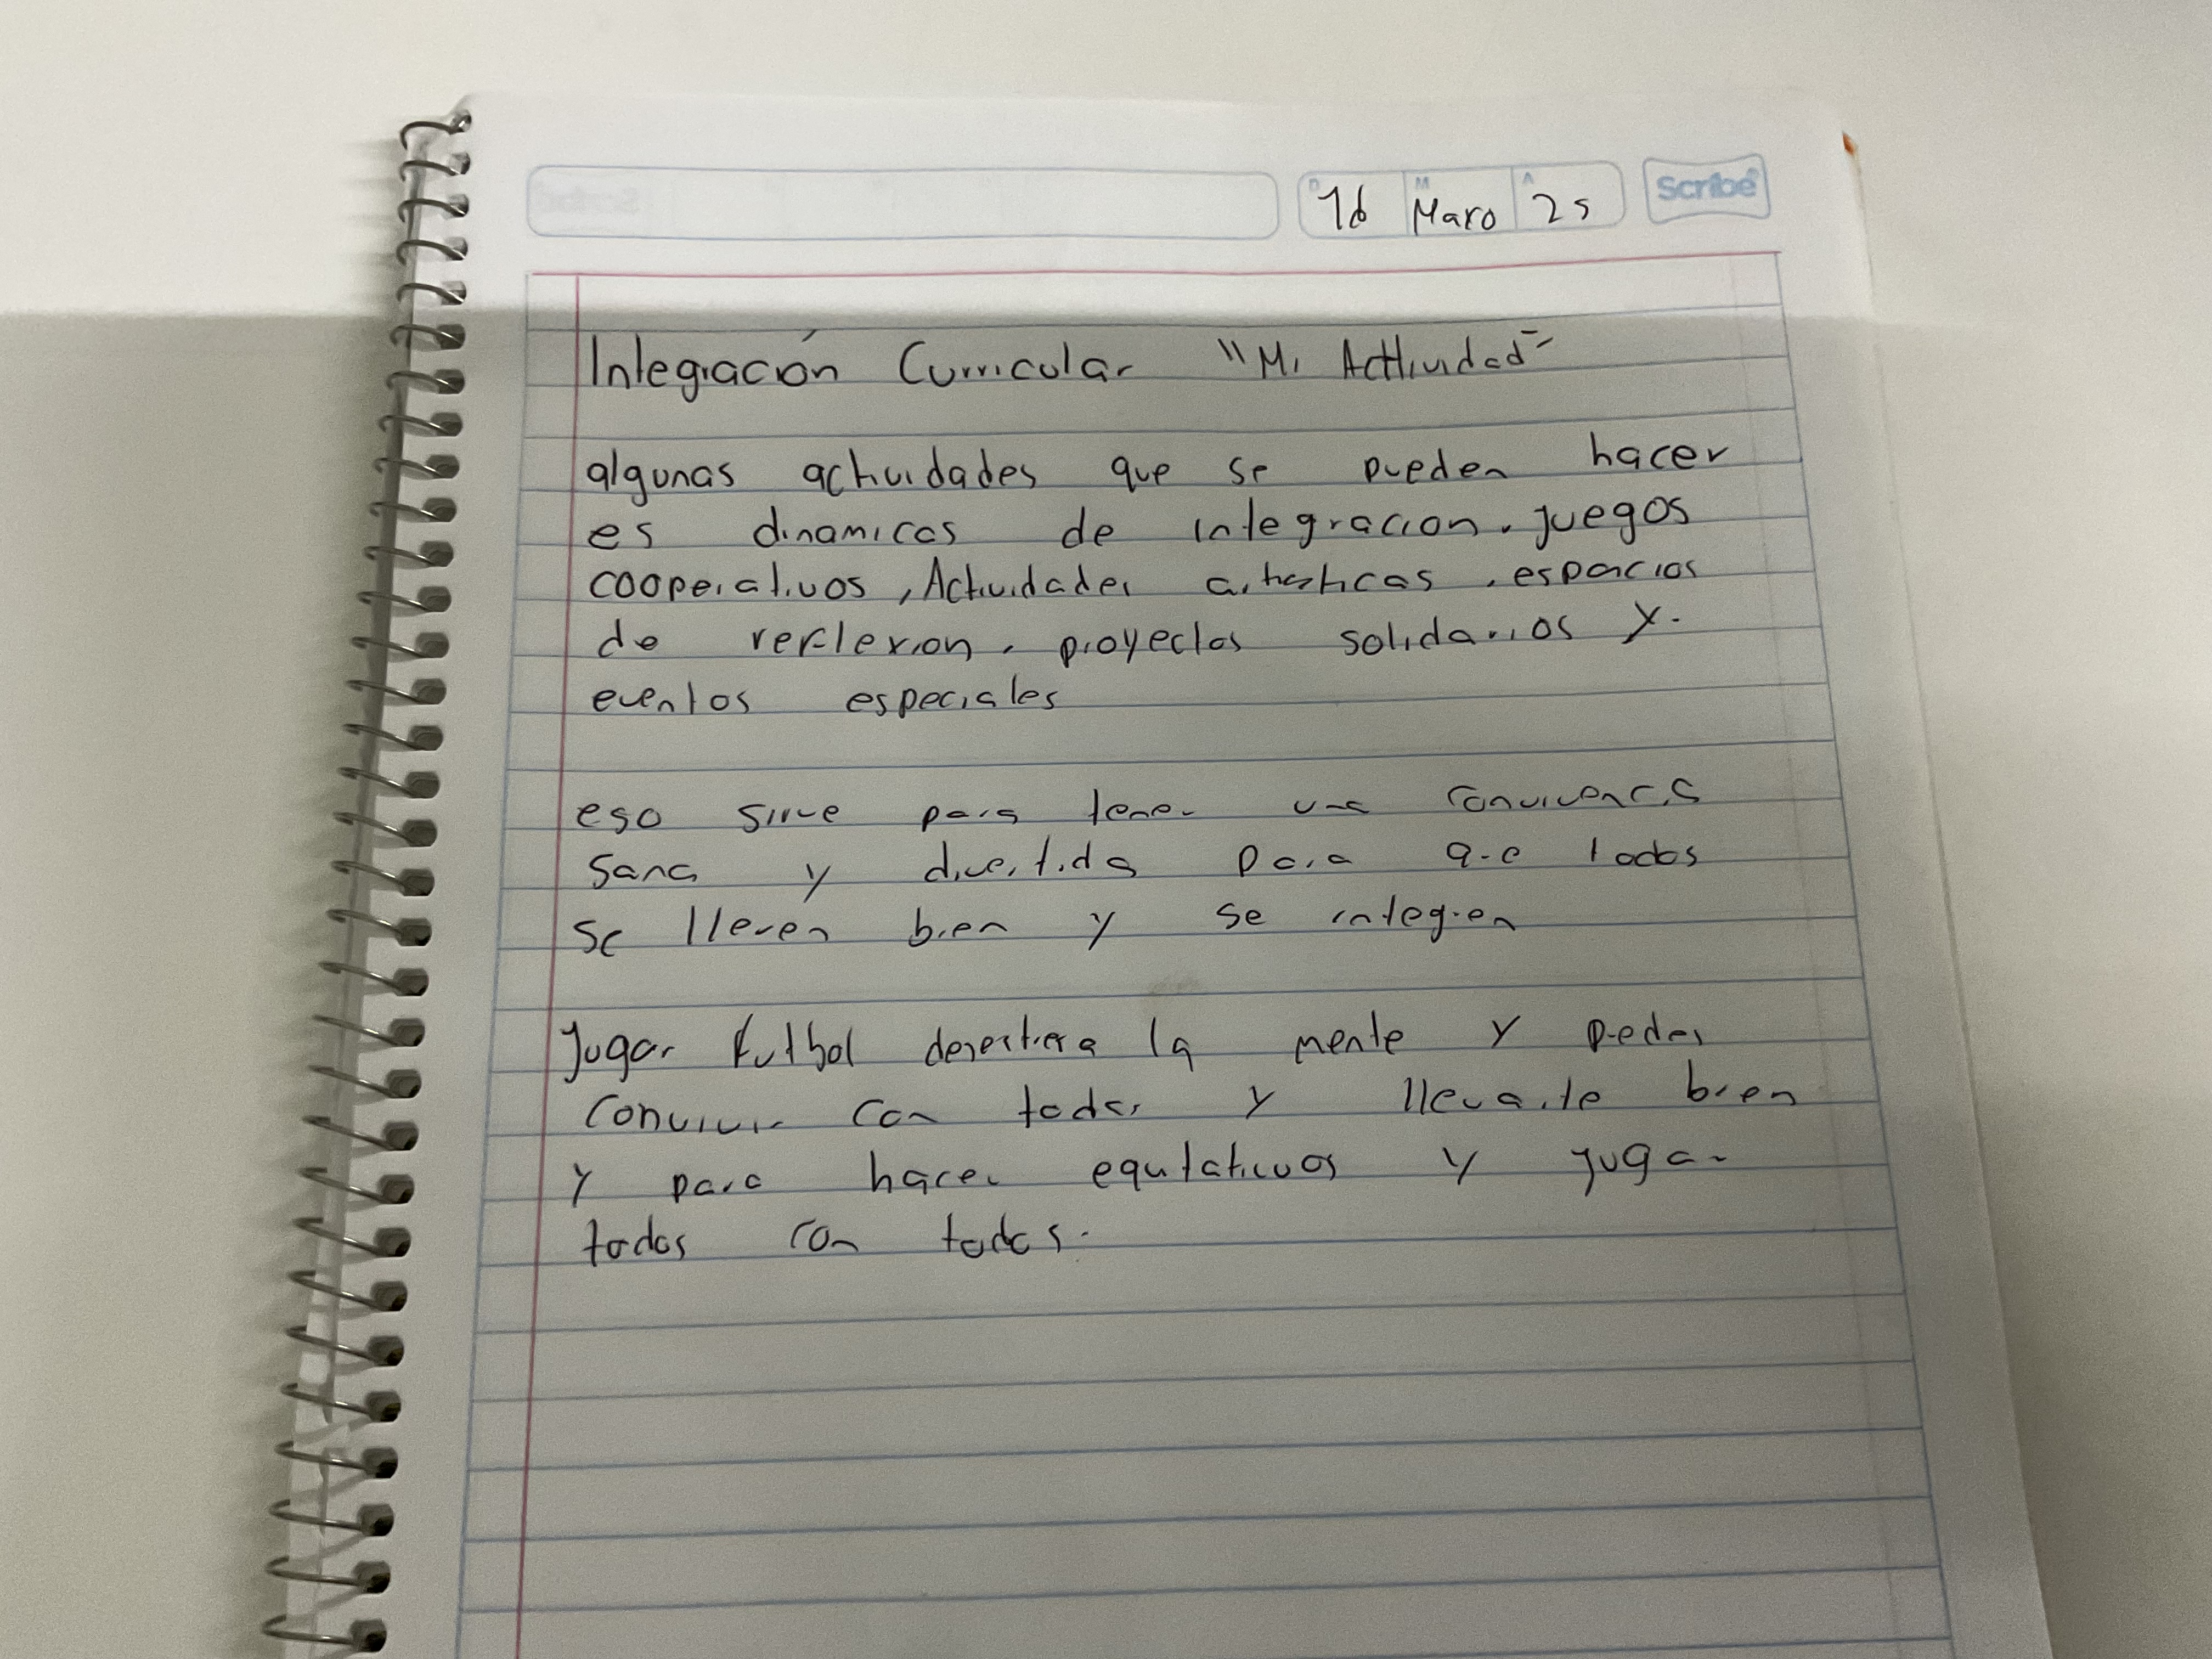 16 Marzo 25 Scribe
Integración Curricular "Mi Actividad"
algunas actividades que se pueden hacer
es dinamicas de integracion, juegos
cooperativos, Actividades artisticas, espacios
de reflexion, proyectos solidarios y.
eventos especiales
eso sirve para tener una convivencia
sana y divertida para que todos
se lleven bien y se integren
Jugar futbol la mente y puedes
convivir con todos y llevarte bien
y para hacer equitativos y jugar
todos con todos.